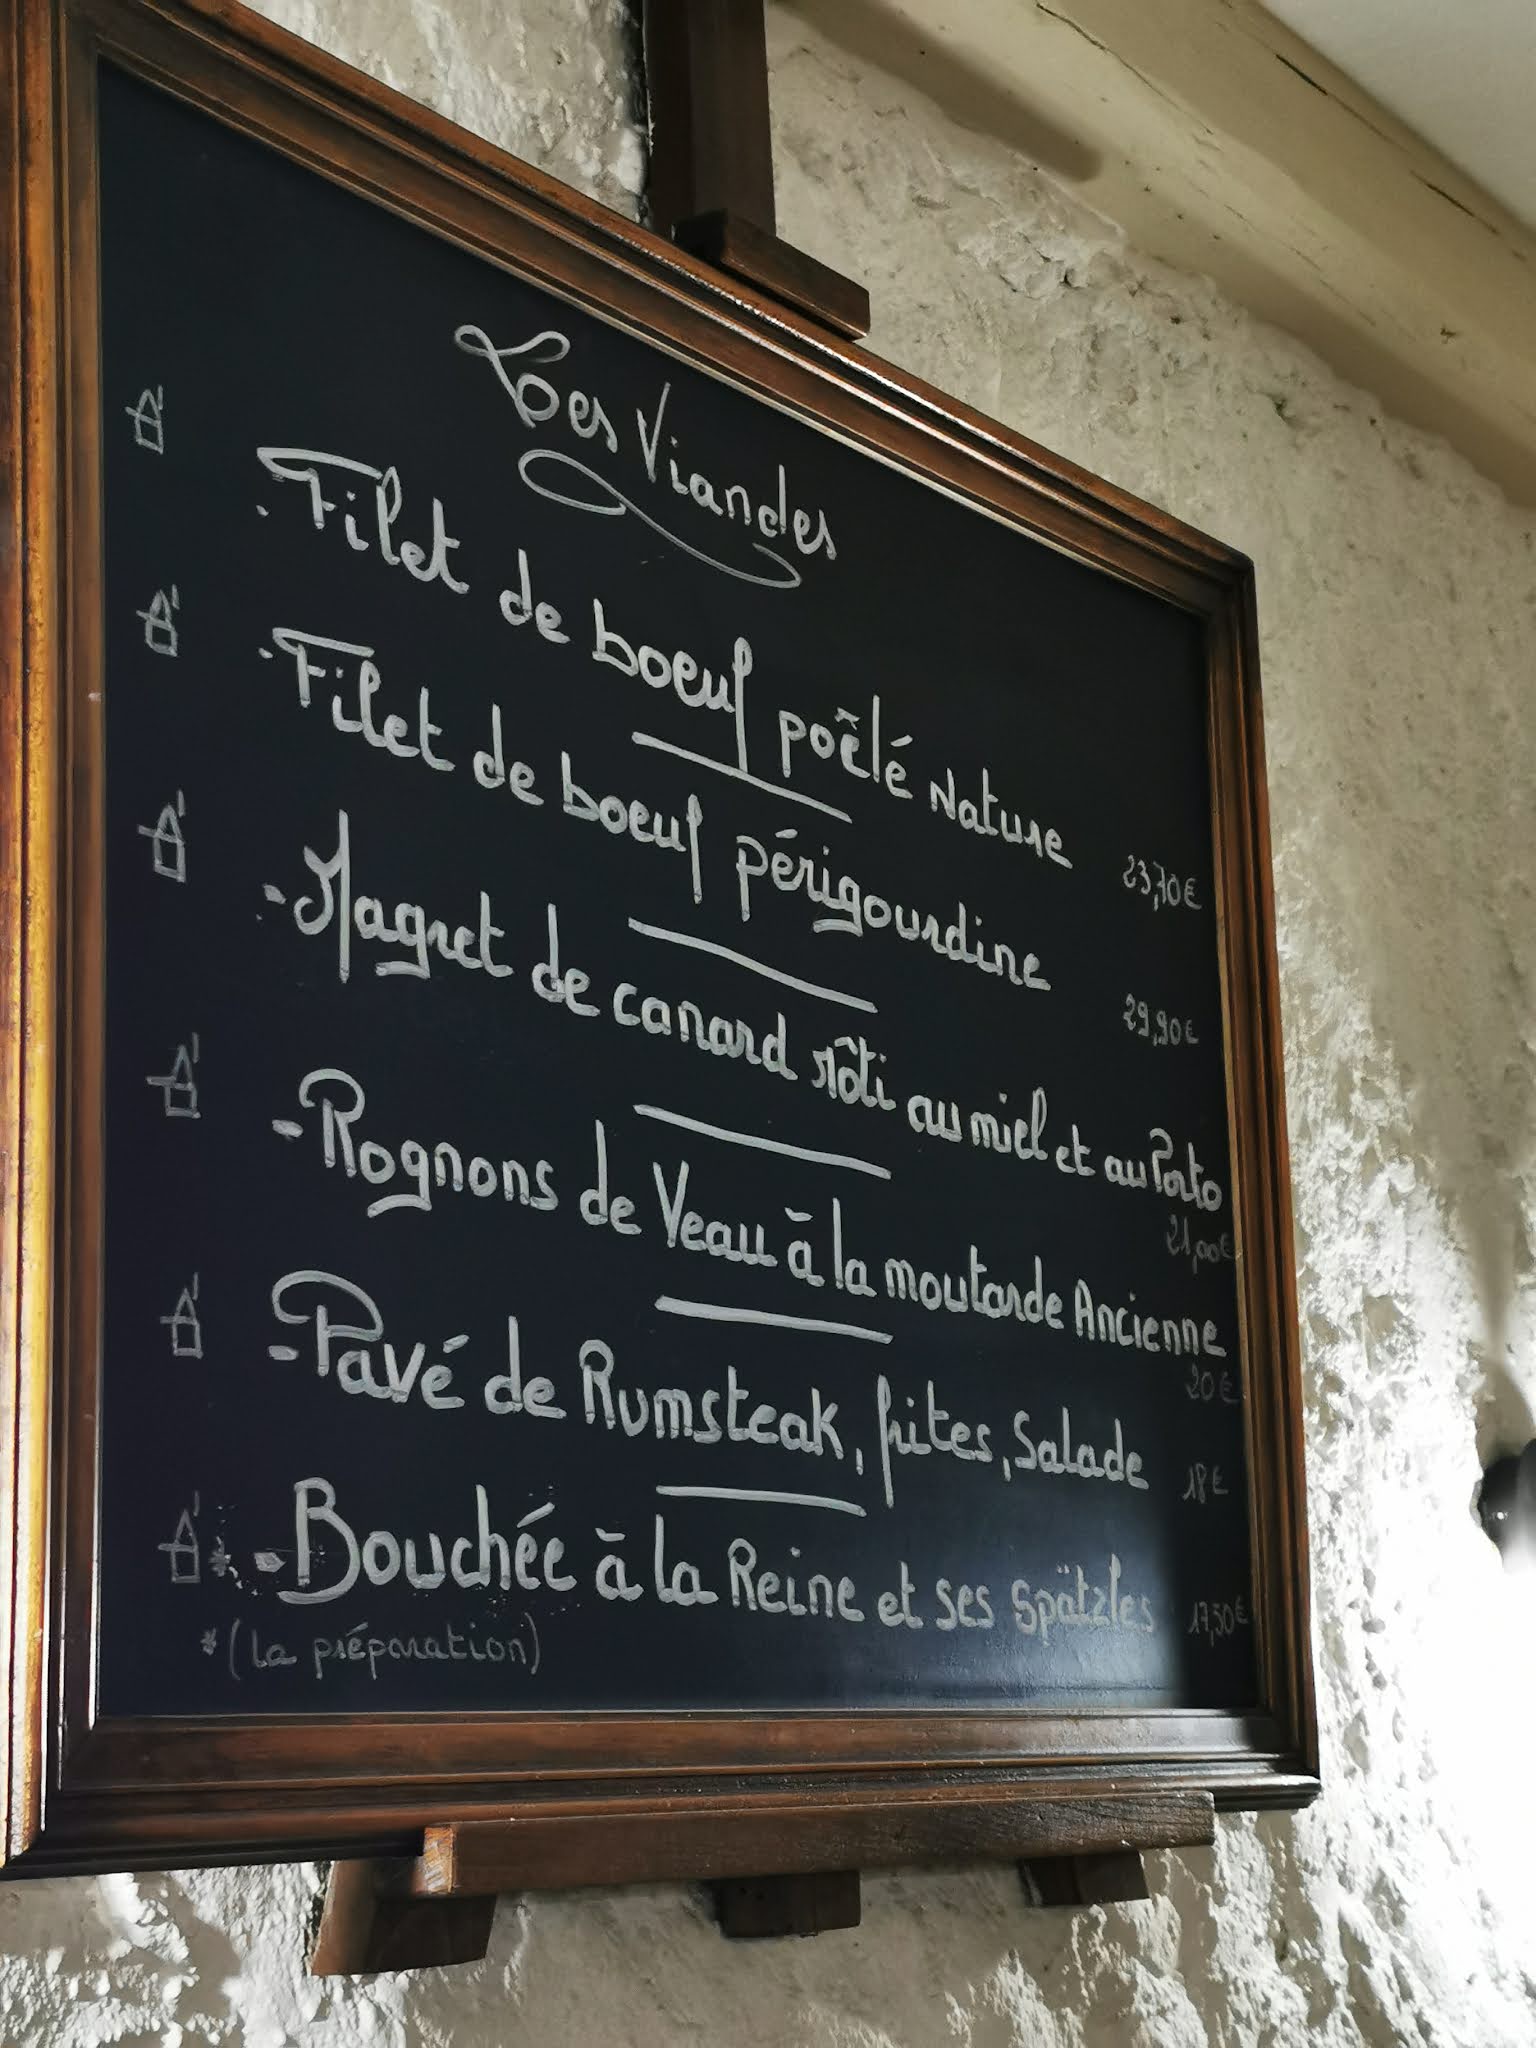 Les Viandes
. Filet de boeuf poêlé Nature 23,70€
. Filet de boeuf périgourdine 29,90€
- Magret de canard rôti au miel et au Porto
21,00€
- Rognons de Veau à la moutarde Ancienne
20€
- Pavé de Rumsteak, frites, Salade 18€
* - Bouchée à la Reine et ses Spätzles 17,50€
* (la préparation)